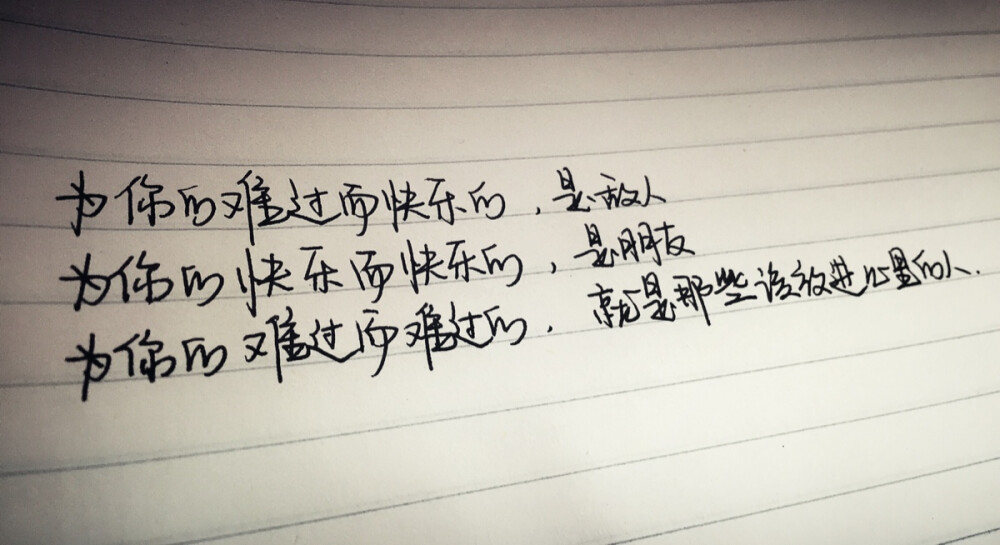 为你的难过而快乐的，是敌人
为你的快乐而快乐的，是朋友
为你的难过而难过的，就是那些该放进心里的人.